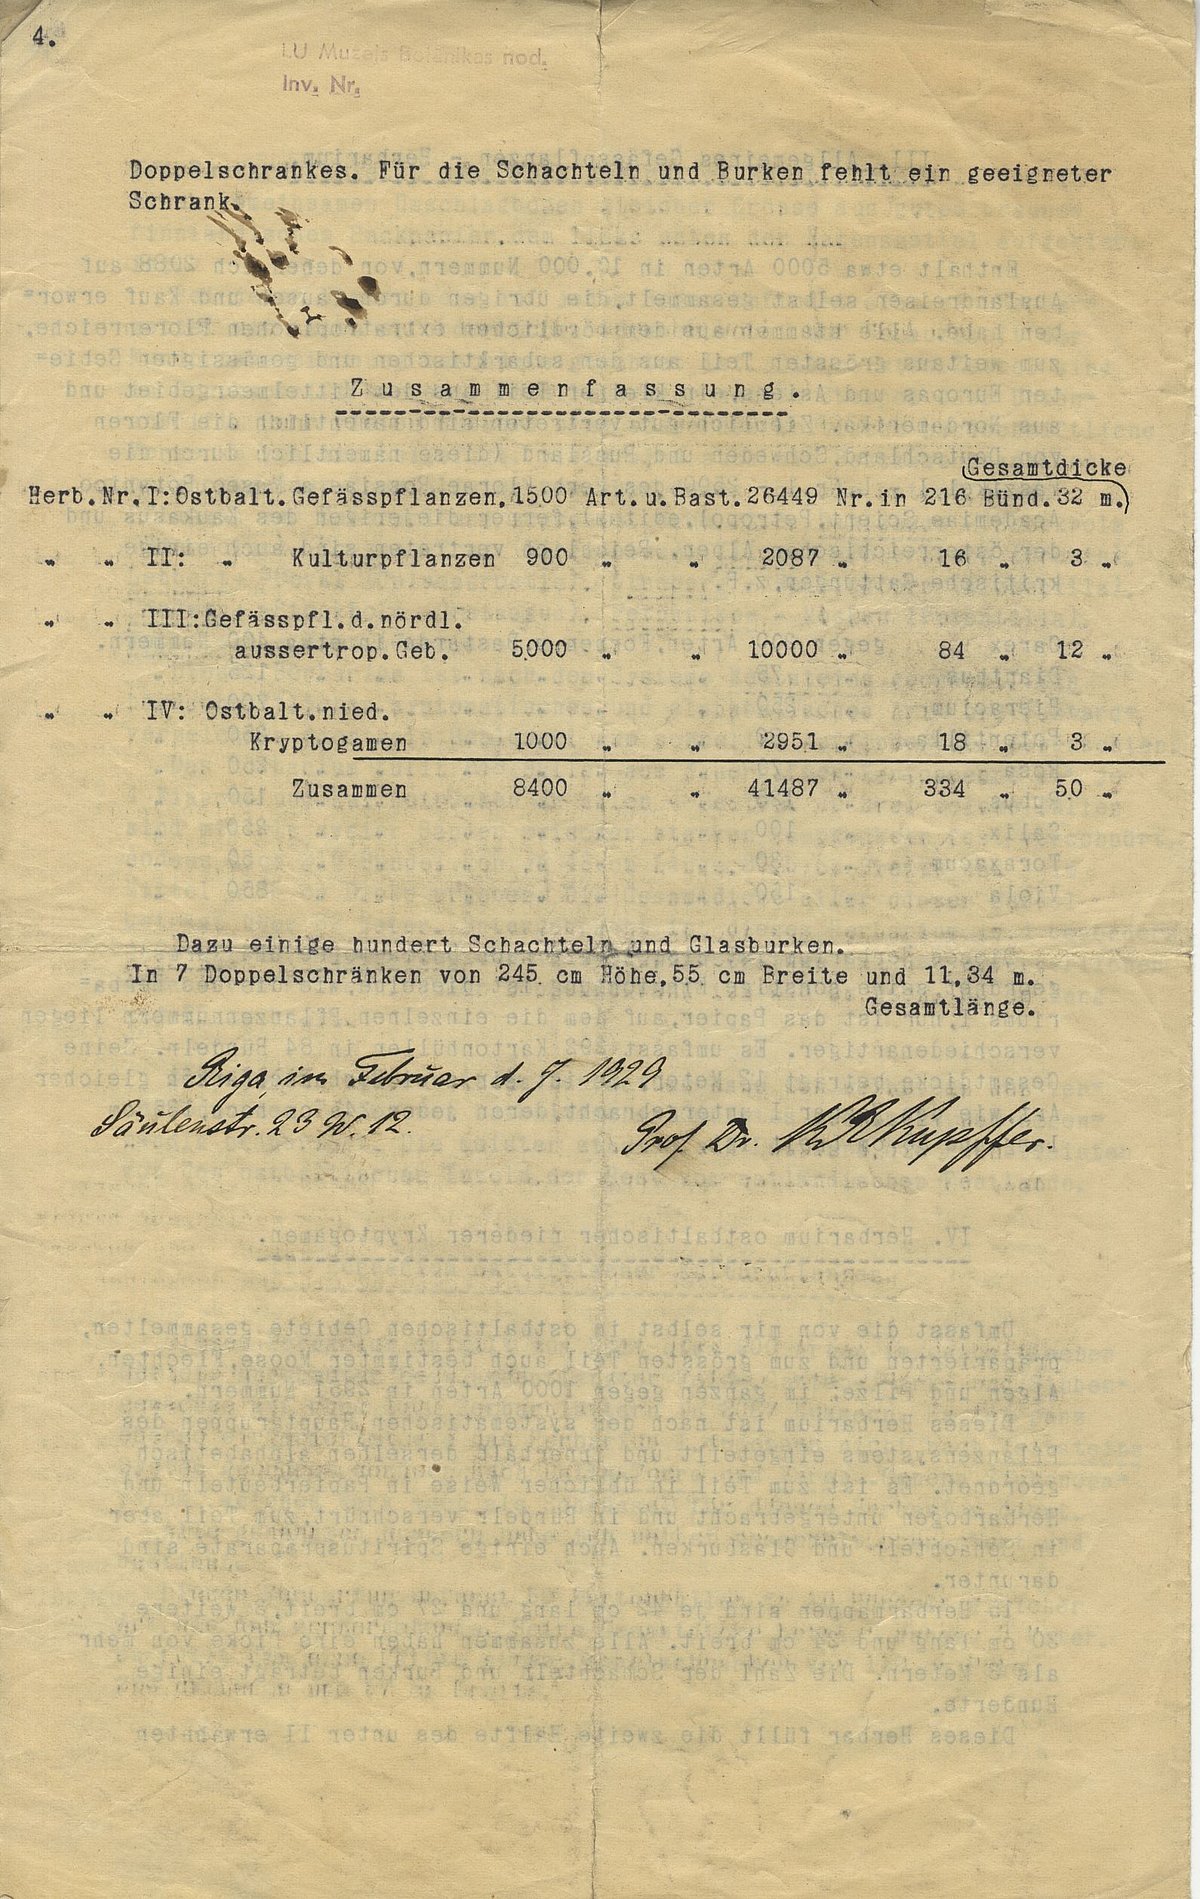 4.
LU Muzejs Botanikas nod.
Inv. Nr.
Doppelschrankes. Für die Schachteln und Burken fehlt ein geeigneter
Schrank.
Zusammenfassung.
Gesamtdicke
Herb. Nr. I: Ostbalt. Gefässpflanzen, 1500 Art. u. Bast. 26449 Nr. in 216 Bünd. 32 m.)
" " II: " Kulturpflanzen 900 " " 2087 " 16 " 3 "
" " III: Gefässpfl. d. nördl.
aussertrop. Geb. 5000 " " 10000 " 84 " 12 "
" " IV: Ostbalt. nied.
Kryptogamen 1000 " " 2951 " 18 " 3 "
Zusammen 8400 " " 41487 " 334 " 50 "
Dazu einige hundert Schachteln und Glasburken.
In 7 Doppelschränken von 245 cm Höhe, 55 cm Breite und 11,34 m.
Gesamtlänge.
Riga, im Februar d. J. 1929
Säulenstr. 23 W. 12.
Prof. Dr. K R Kupffer.